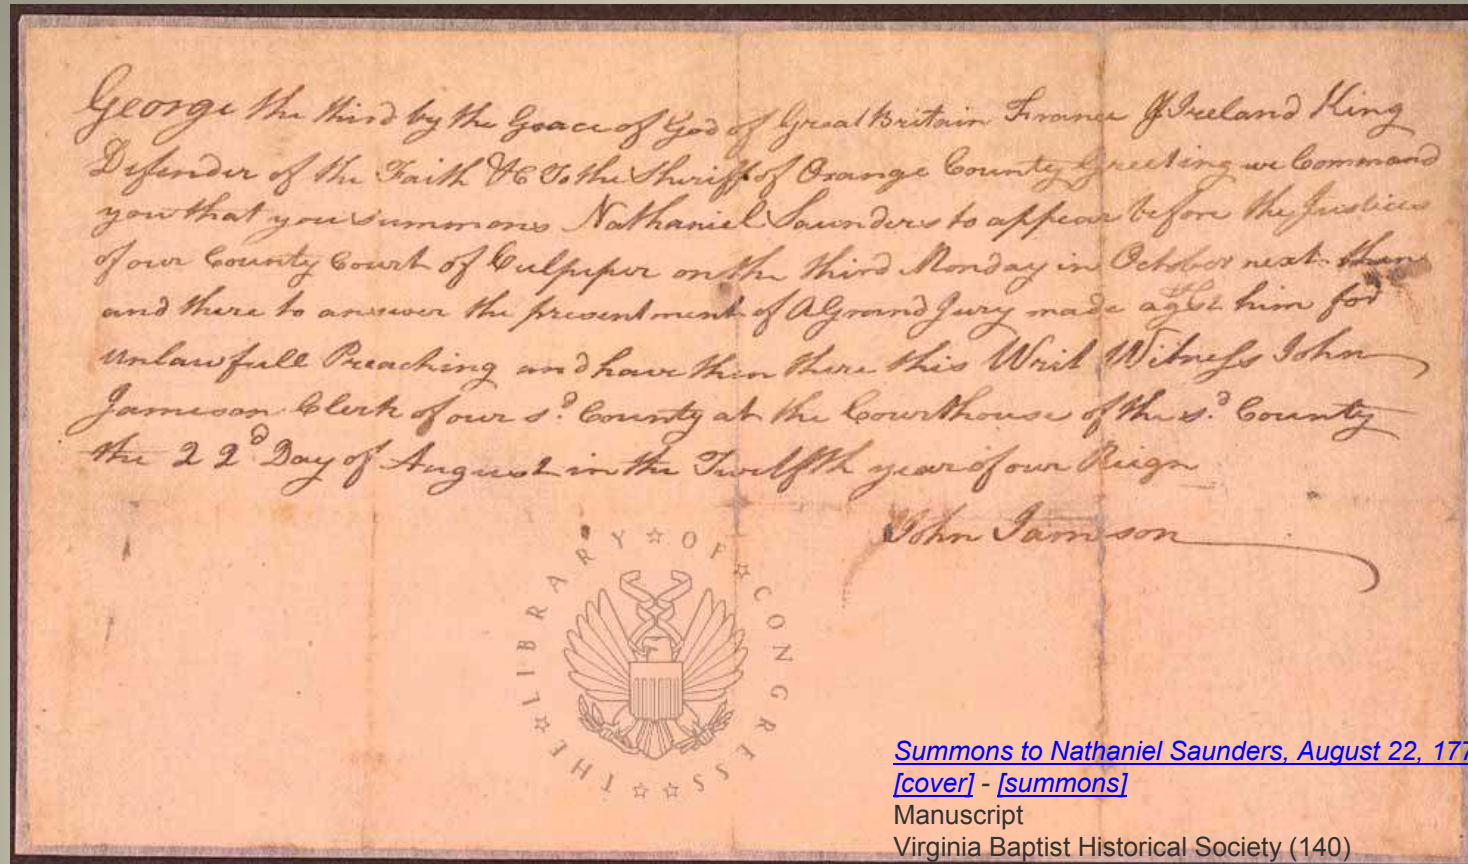 George the third by the Grace of God of Great Britain France & Ireland King
Defender of the Faith &C To the Sheriff of Orange County Greeting we Command
you that you summons Nathaniel Saunders to appear before the Justices
of our County Court of Culpeper on the third Monday in October next then
and there to answer the presentment of A Grand Jury made agst him for
unlawfull Preaching and have then there this Writ Witness John
Jameson Clerk of our sd. County at the Courthouse of the sd. County
the 22d Day of August in the Twelfth year of our Reign
John Jameson
THE LIBRARY OF CONGRESS
Summons to Nathaniel Saunders, August 22, 177
[cover] - [summons]
Manuscript
Virginia Baptist Historical Society (140)